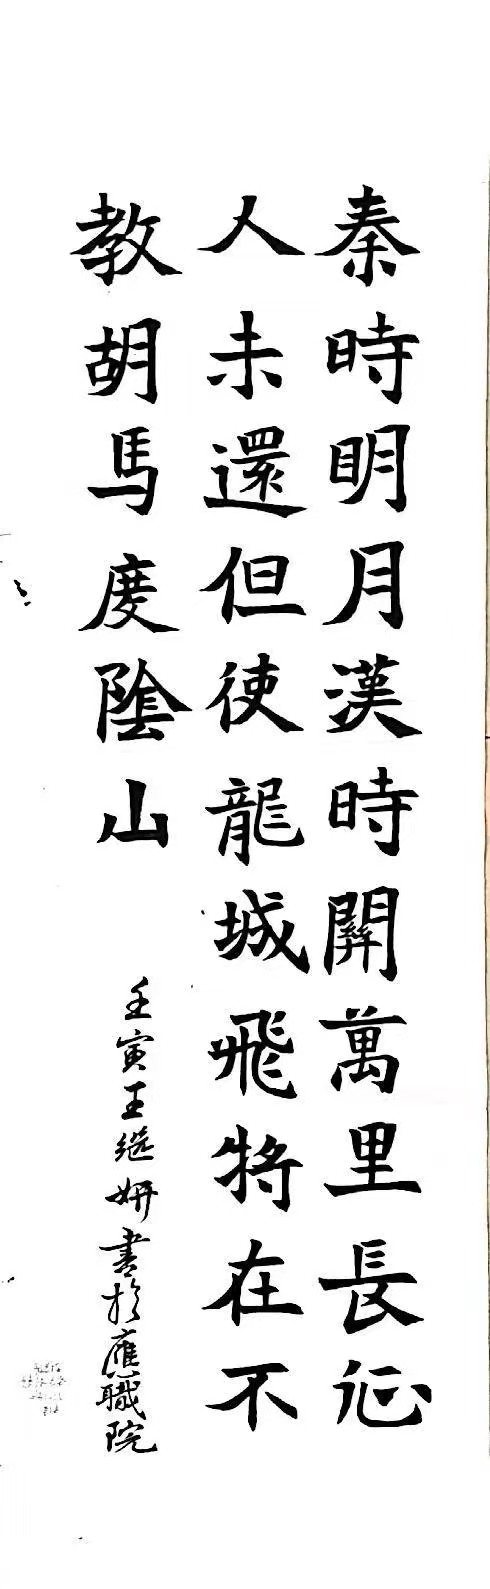 秦時明月漢時關萬里長征
人未還但使龍城飛将在不
教胡馬度陰山
壬寅王繼妍書於應職院